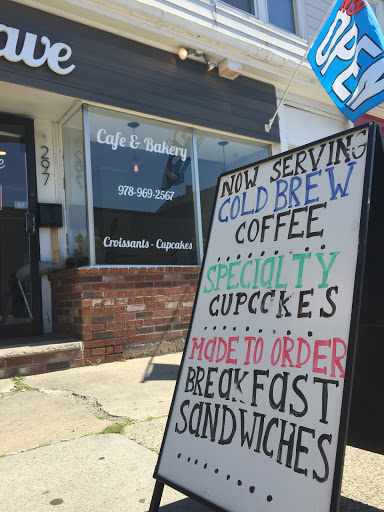 ave
OPEN
Cafe & Bakery
978-969-2567
Croissants - Cupcakes
287
NOW SERVING
COLD BREW
COFFEE
SPECIALTY
CUPCCKES
MADE TO ORDER
BREAKFAST
SANDWICHES